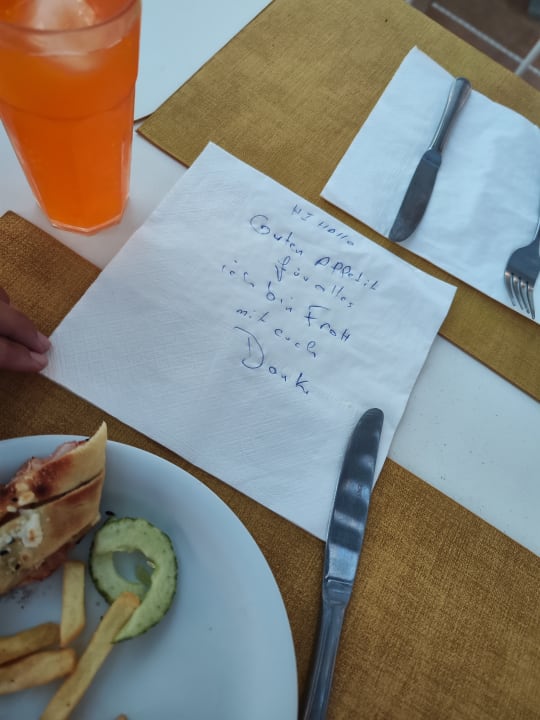 HI Hallo
Guten Appetit
für alles
ich bin Froh
mit euch
Dank